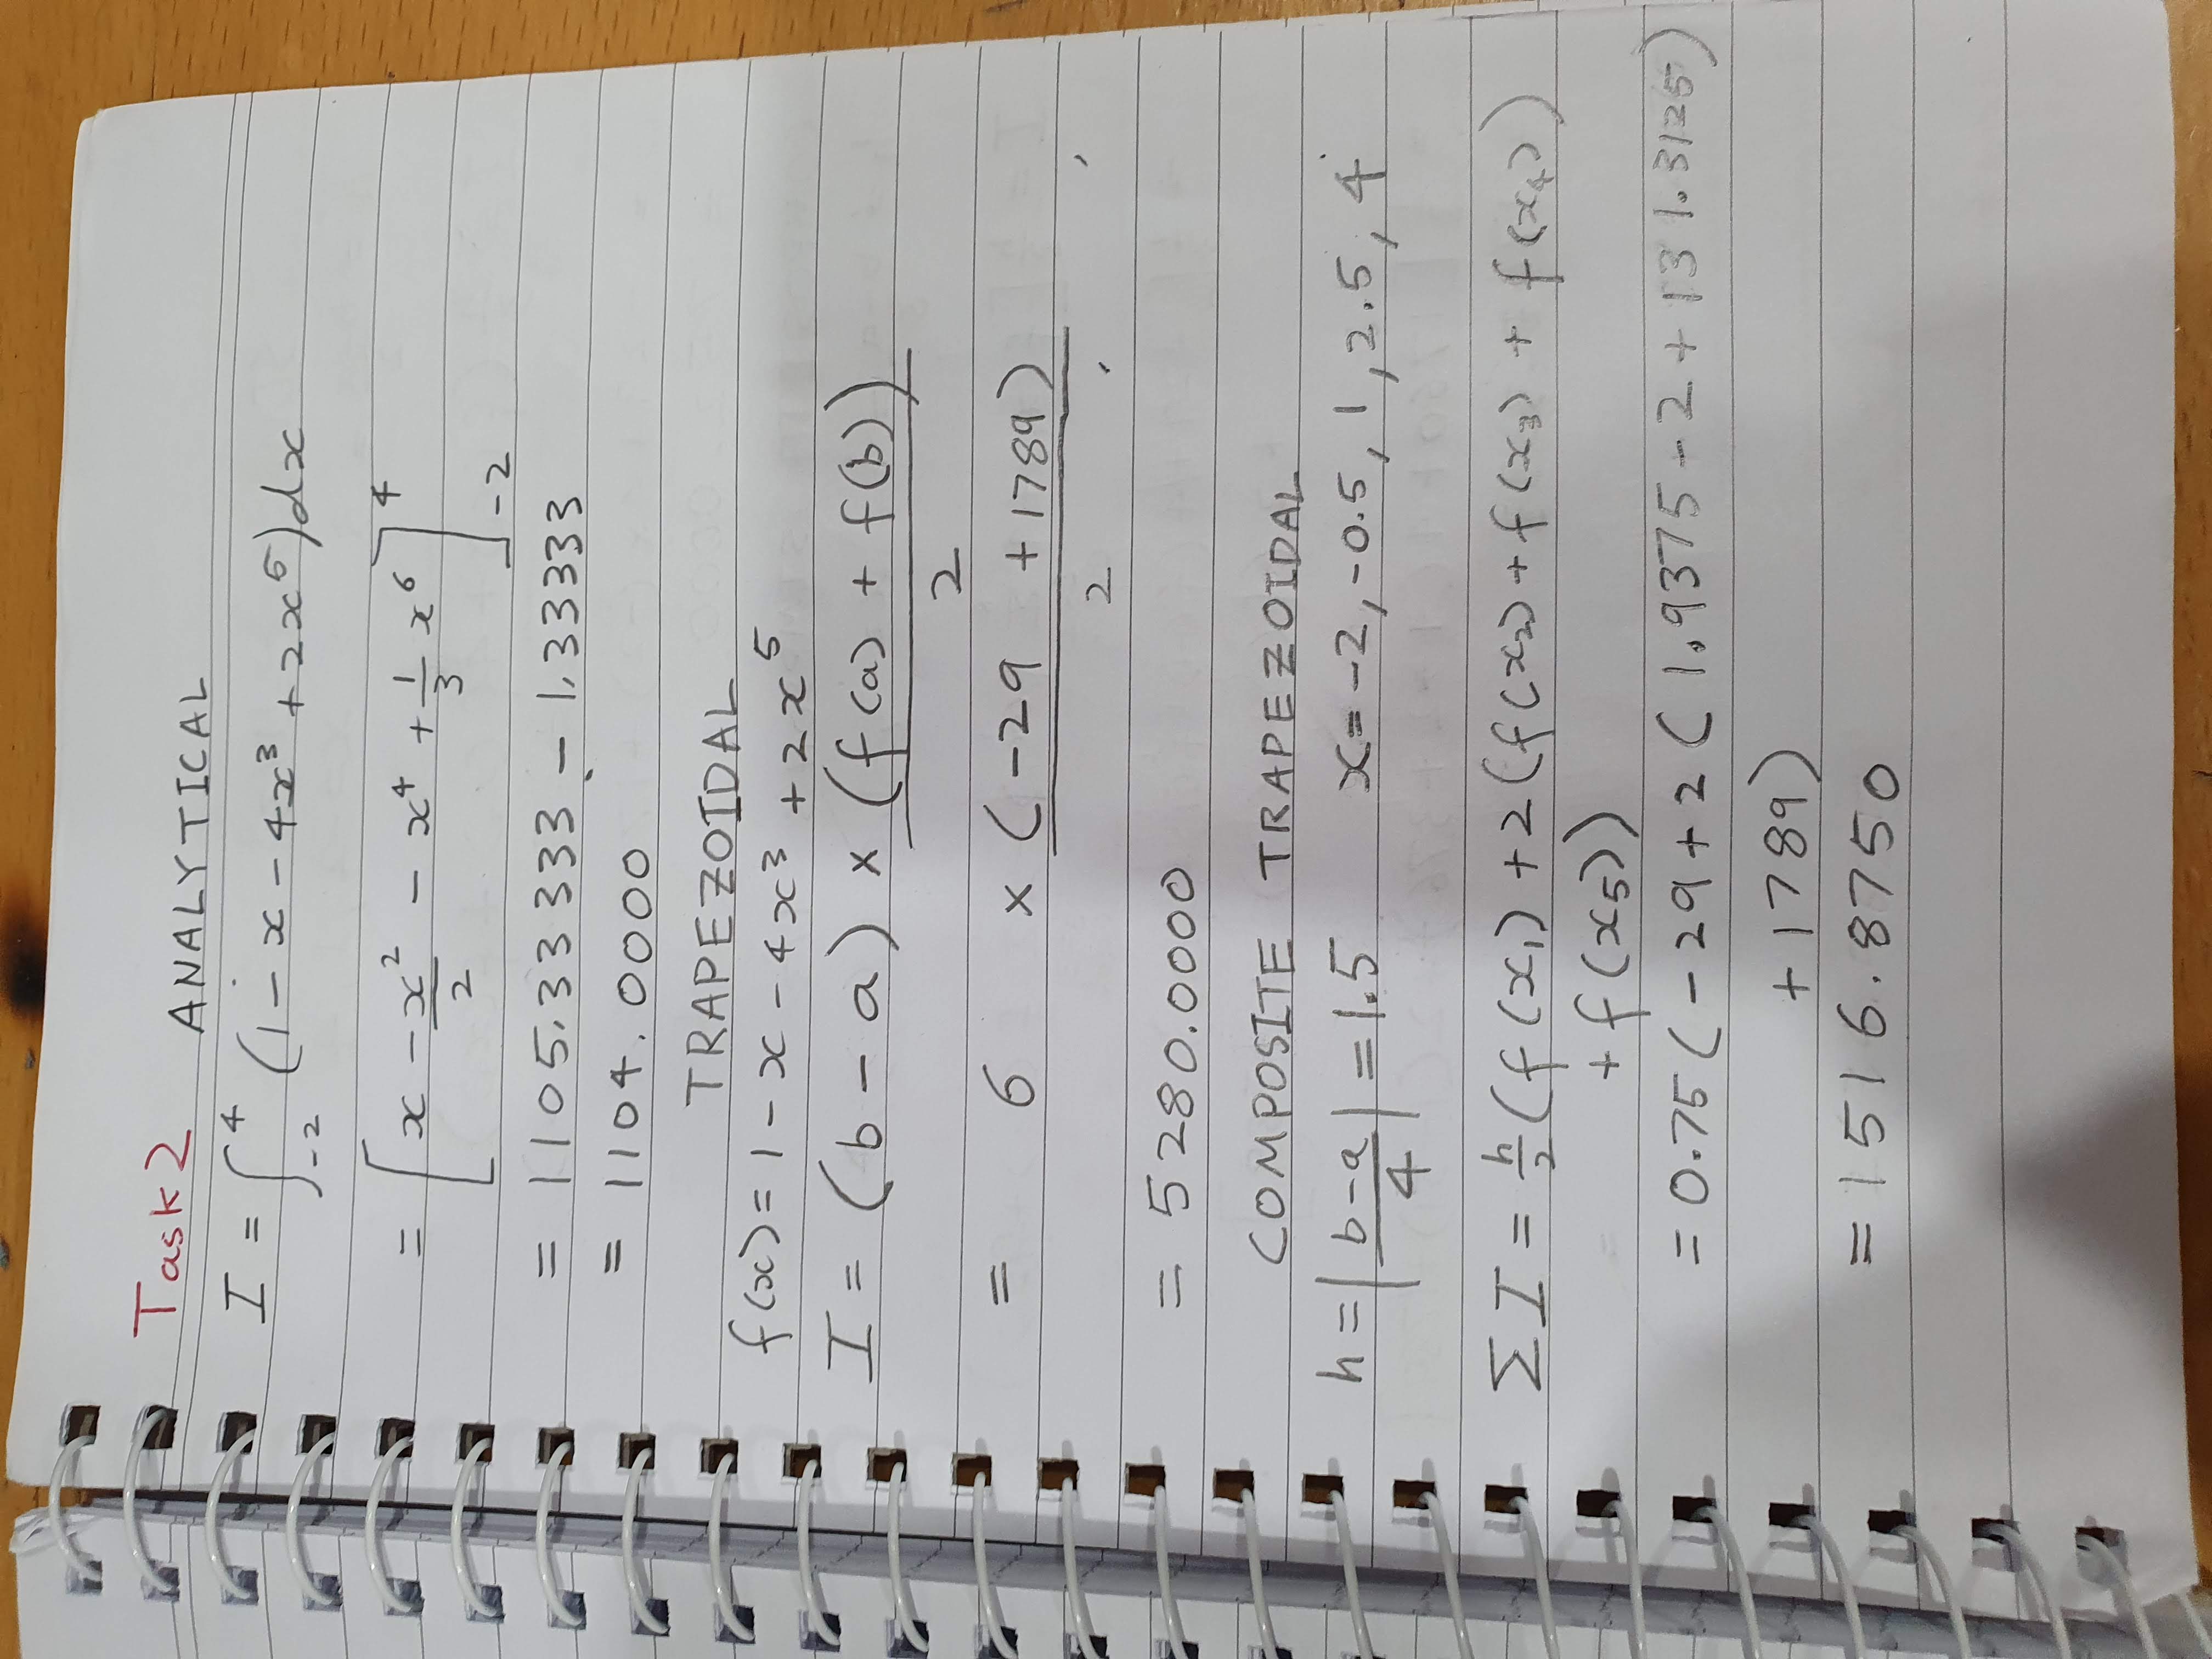 Task 2 ANALYTICAL
I = ∫₋₂⁴ (1 - x - 4x³ + 2x⁵)dx
= [x - x²/2 - x⁴ + 1/3 x⁶]₋₂⁴
= 1105.33333 - 1.33333
= 1104.0000
TRAPEZOIDAL
f(x) = 1 - x - 4x³ + 2x⁵
I = (b - a) × (f(a) + f(b))/2
= 6 × (-29 + 1789)/2
= 5280.0000
COMPOSITE TRAPEZOIDAL
h = |b-a/4| = 1.5 x = -2, -0.5, 1, 2.5, 4
ΣI = h/2 (f(x₁) + 2(f(x₂) + f(x₃) + f(x₄))
+ f(x₅))
= 0.75(-29 + 2(1.9375 - 2 + 131.3125)
+ 1789)
= 1516.8750